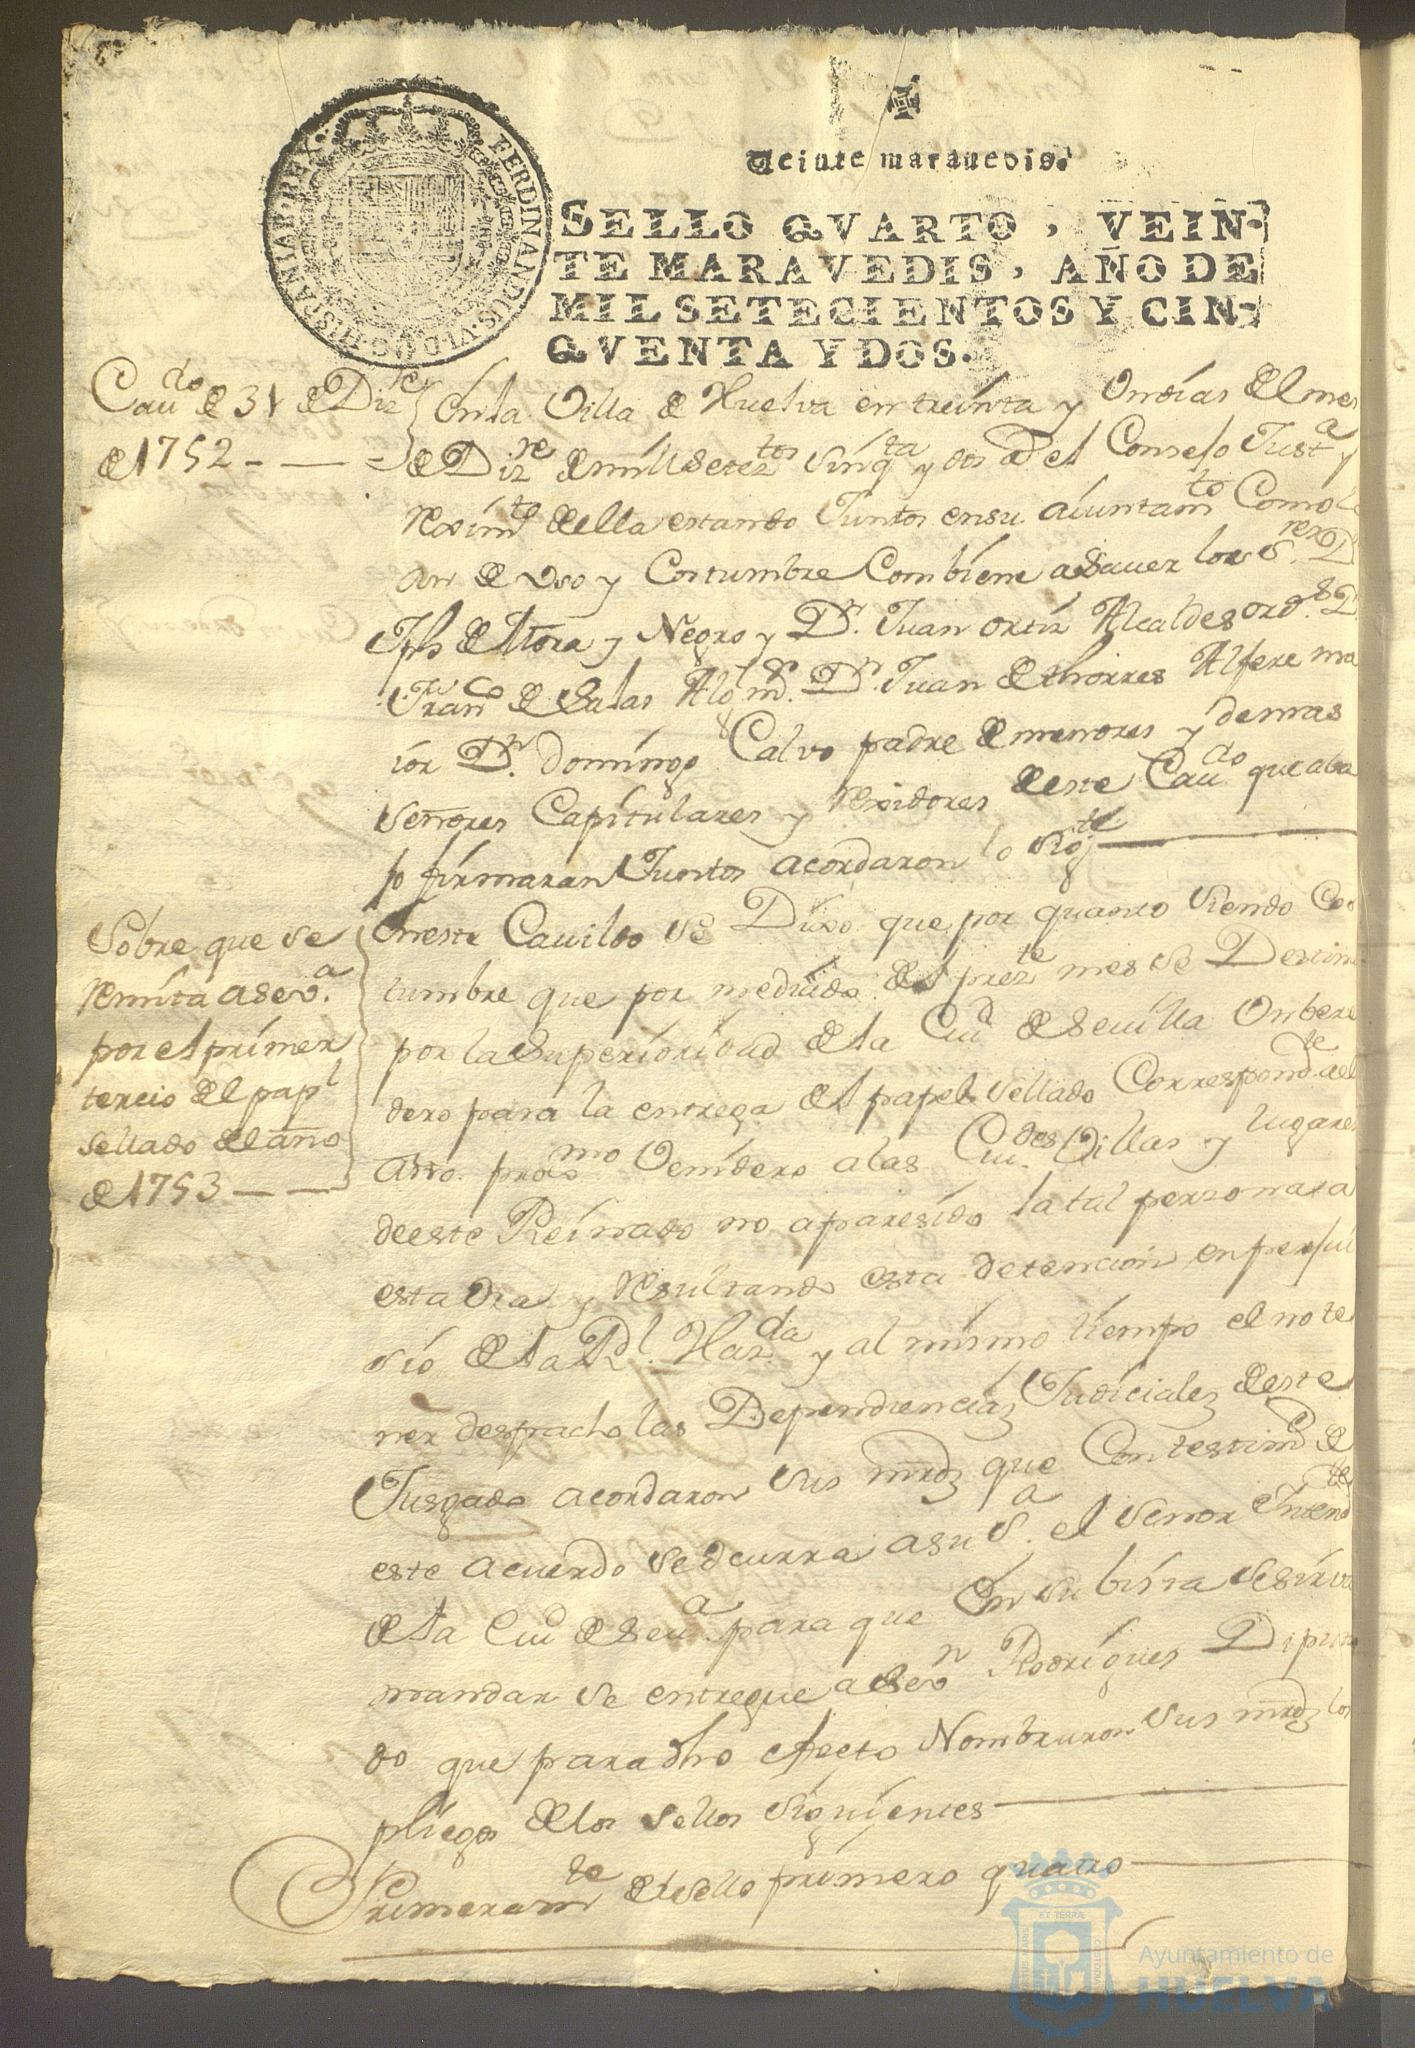 FERDINANDUS.VI.D.G.HISPANIAR.REX.
Veinte maravedis.
SELLO QVARTO, VEIN-
TE MARAVEDIS, AÑO DE
MIL SETECIENTOS Y CIN-
QVENTA Y DOS.
Caudo de 31 de Dize
de 1752
En la Villa de Huelva en treinta y Un dias del mes
de Dizre de mill seteztos sinqta y dos el Consejo Justa y
Reximto della estando Juntos en su aiuntamto Como
an de Uso y Costumbre Combiene a Sauer los Sres Dn
Jph de Mora y Negro y Dn. Juan ortiz Alcaldes ords. Dn
Franco de Salas Algl mr. Dn. Juan de thorres Alfere ma
ior Dn. domingo Calvo padre de menores y demas
señores Capitulares y Rexidores deeste Caudo que aba
jo firmaran Juntos acordaron lo sigte
Sobre que se
Remita a Seva.
por el primer
tercio del papl
sellado del año
de 1753
En este Cauildo se Dixo que por quanto siendo Cos
tumbre que por mediado del preste mes se Destine
por la Superioridad de la Ciud de Seuilla Un bere
dero para la entrega del papel sellado Correspondte al
Año proxmo Venidero a las Ciudes Villas y lugares
deeste Reinado no aparesido la tal persona a
esta dia y Resultando esta detencion en perjui
sio de la Rl. Hazda y al mismo tiempo el no te
ner despacho las Dependiencias Judiciales deeste
Jusgado acordaron sus mrds que Con testimo de
este acuerdo se ocurra a su Sa. el señor Intendte
de la Ciud de Seua. para que En su bista se sirva
mandar se entregue a Sevn Rodrigues Diputa
do que para dho efecto Nombraron sus mrds los
pliegos de los sellos siguientes
Primeramte del sello primero quatro
Ayuntamiento de
HUELVA